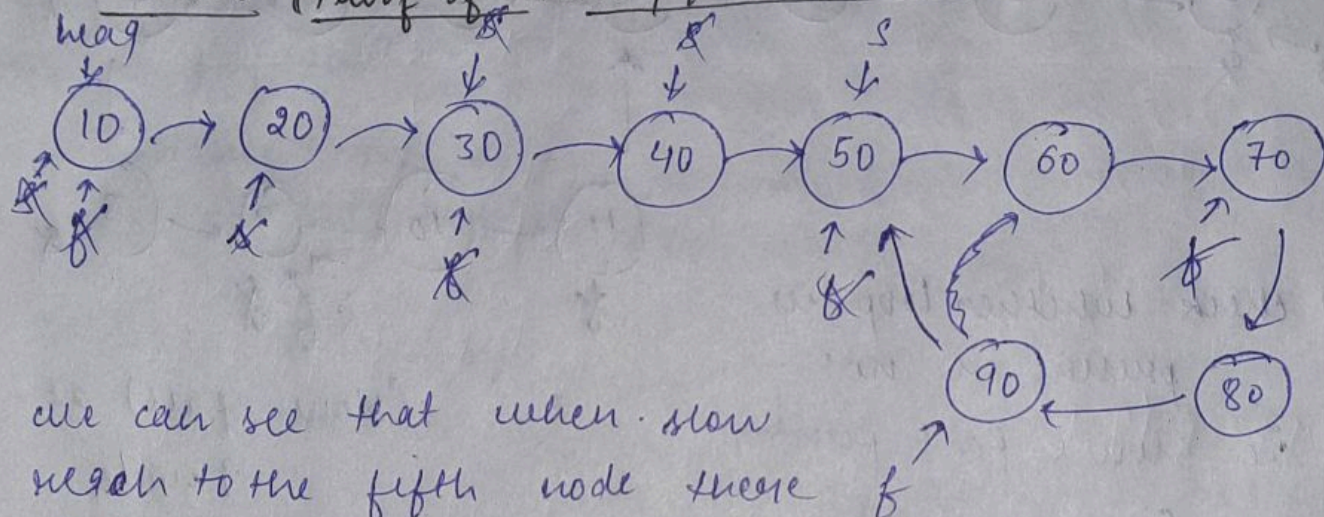 Proof of
head
s
10 20 30 40 50 60 70
f
90 80
we can see that when slow
reach to the fifth node there f